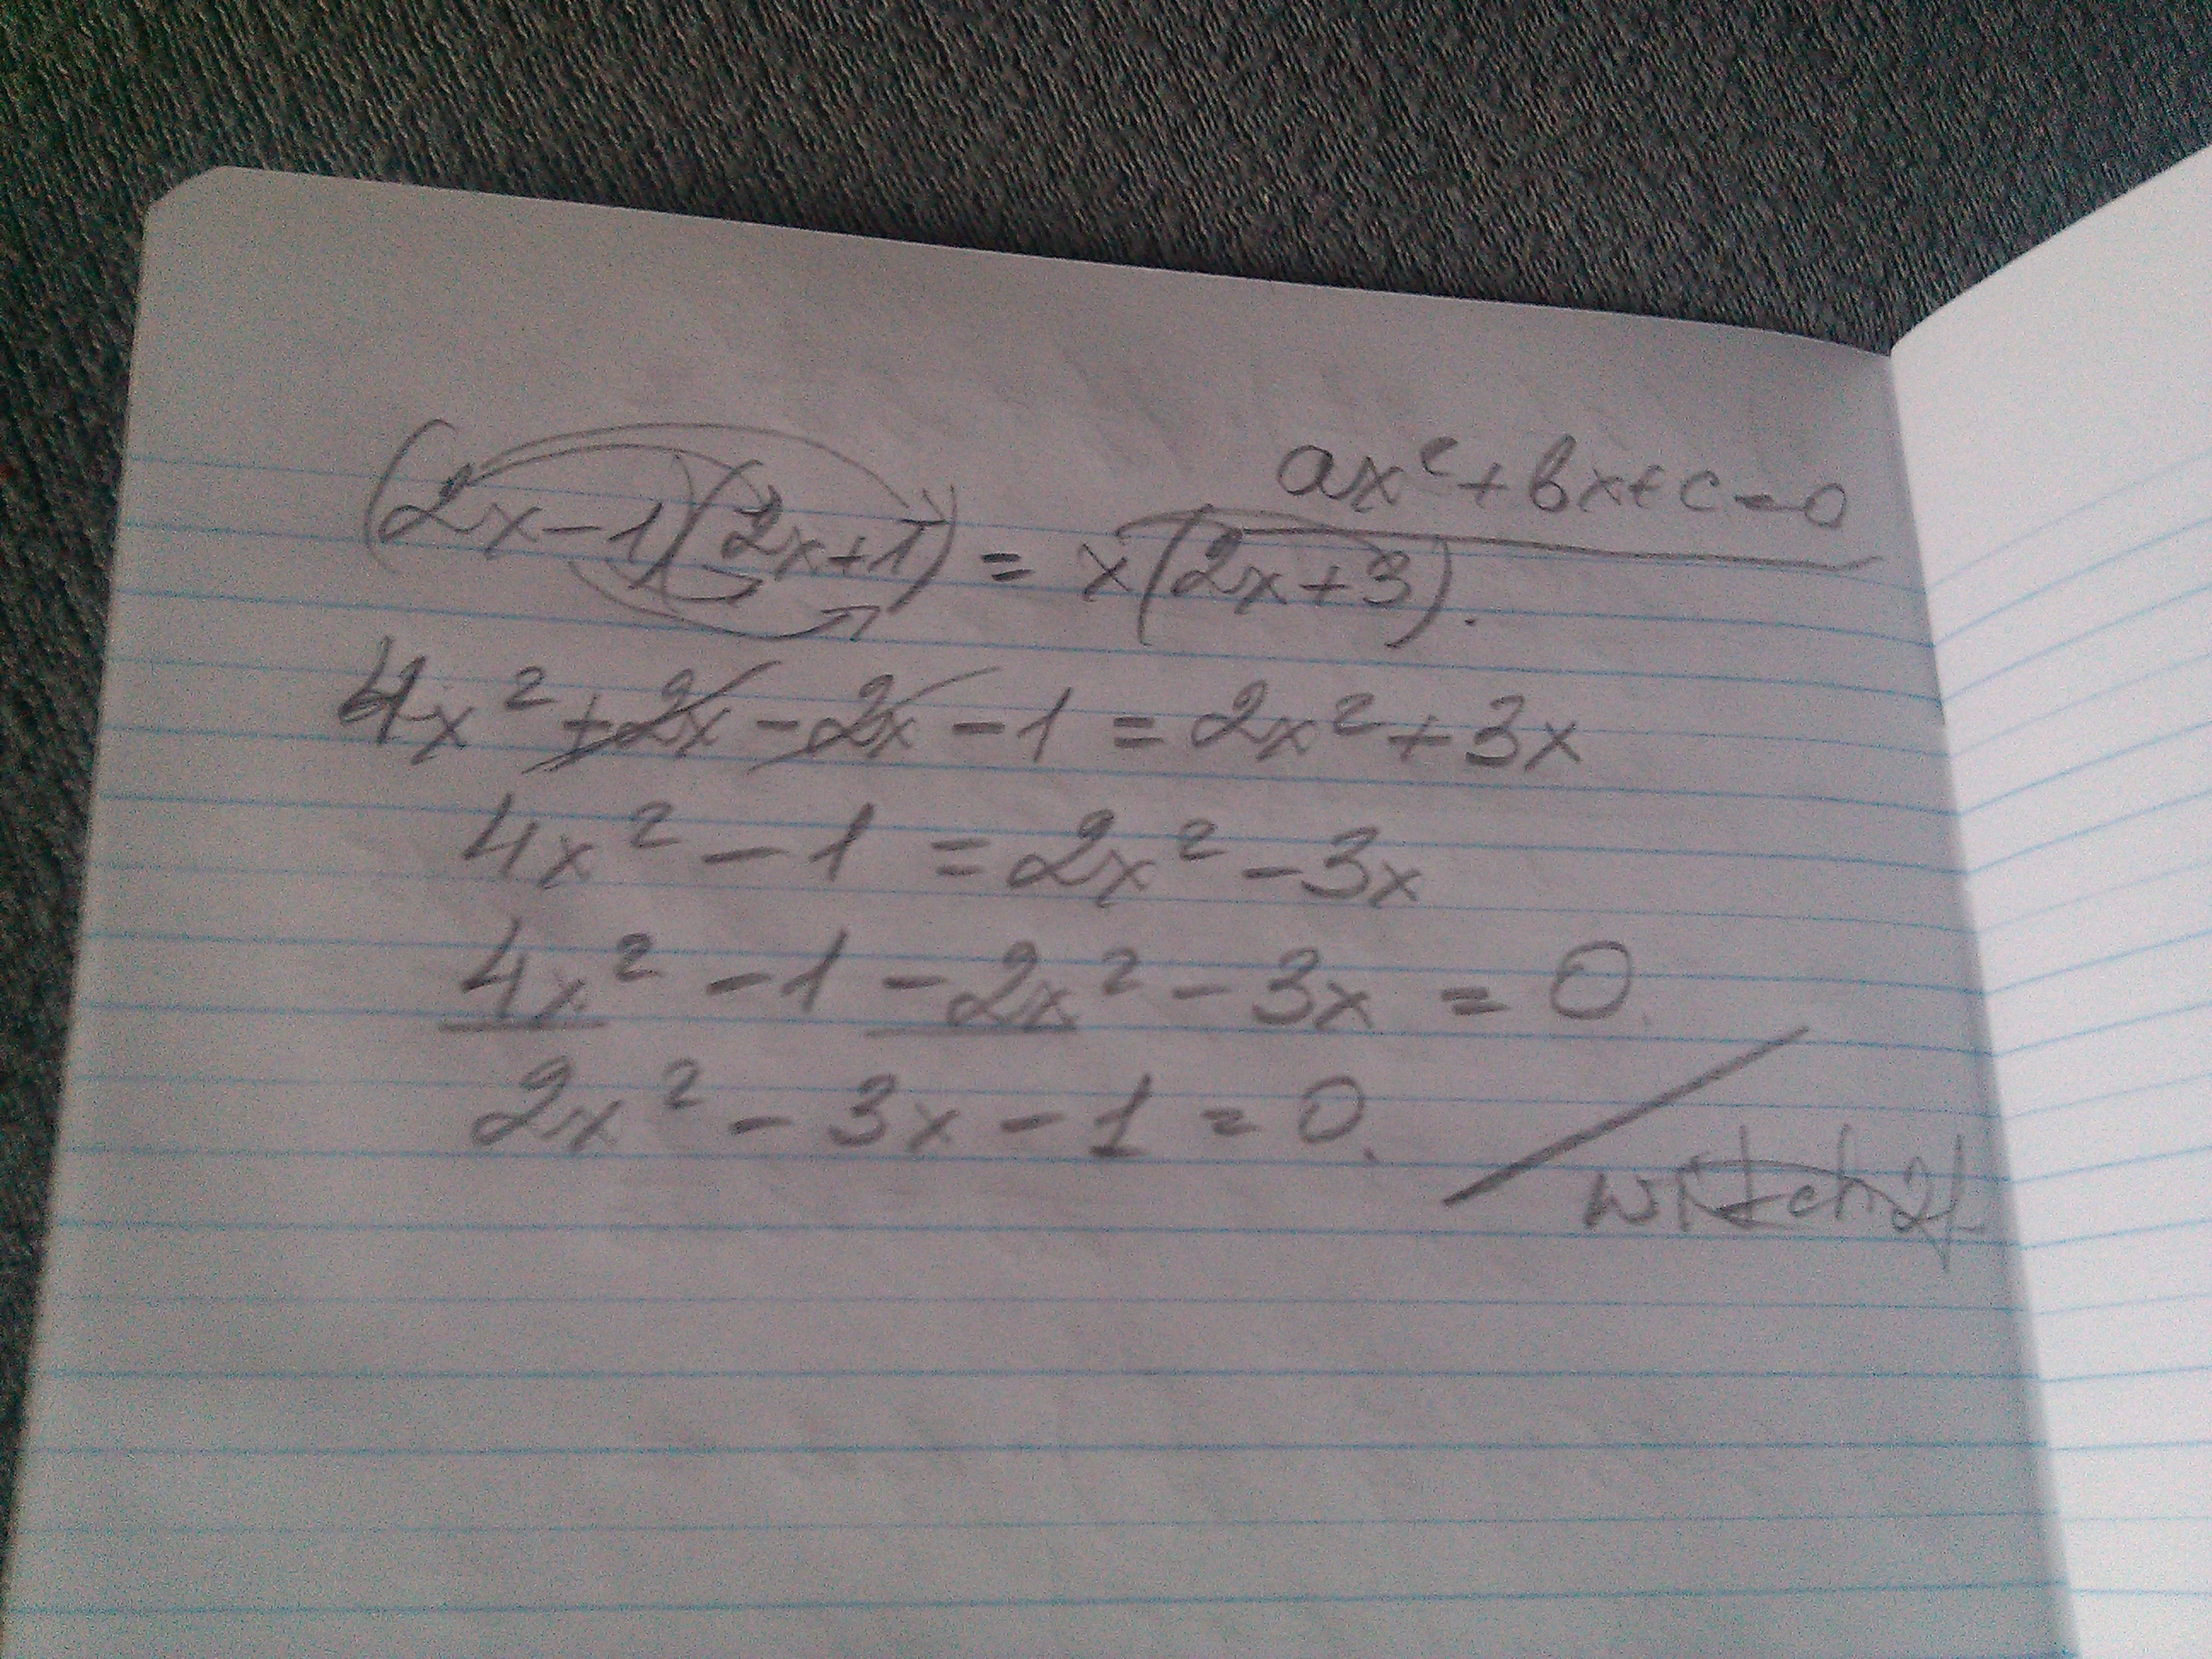 ax² + bx + c = 0
(2x - 1)(2x + 1) = x(2x + 3).
4x² + 2x - 2x - 1 = 2x² + 3x
4x² - 1 = 2x² - 3x
4x² - 1 - 2x² - 3x = 0.
2x² - 3x - 1 = 0.